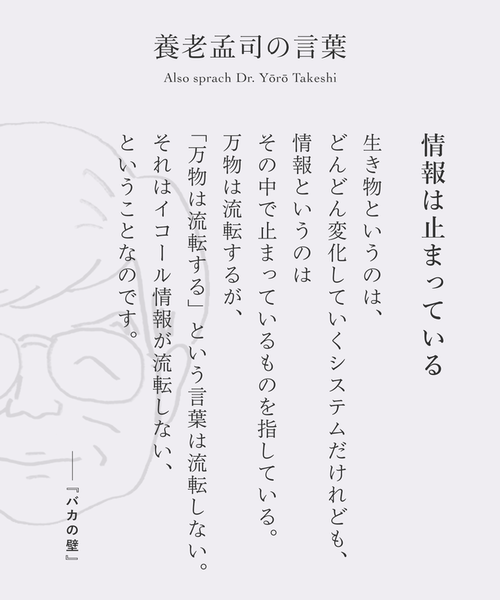 養老孟司の言葉
Also sprach Dr. Yōrō Takeshi
情報は止まっている
生き物というのは、
どんどん変化していくシステムだけれども、
情報というのは
その中で止まっているものを指している。
万物は流転するが、
「万物は流転する」という言葉は流転しない。
それはイコール情報が流転しない、
ということなのです。
──『バカの壁』